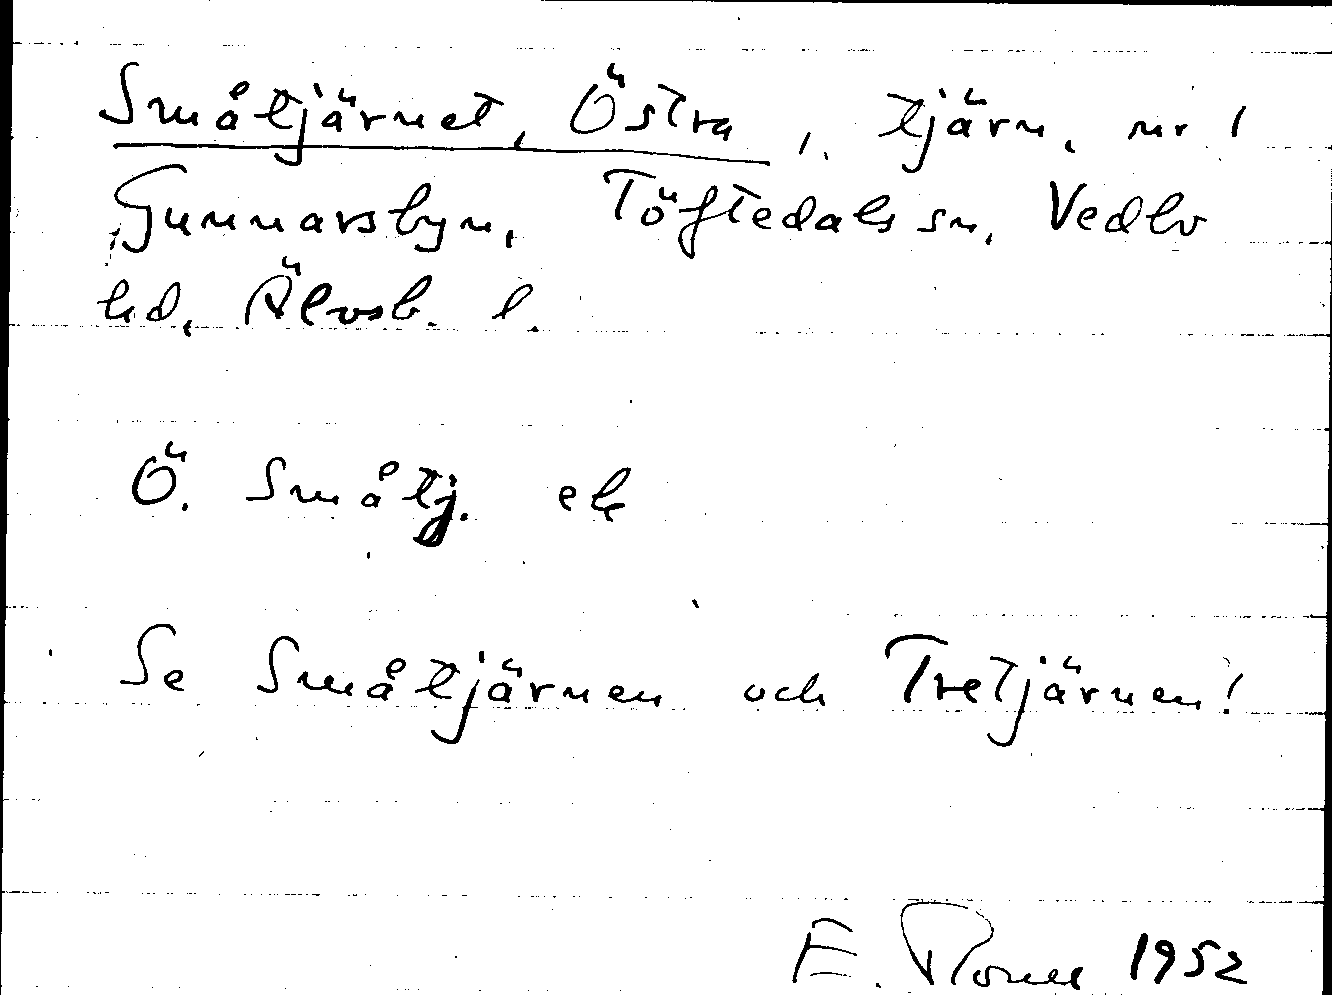 Småtjärnet, Östra, tjärn, nr 1
Gunnarsbyn, Töftedals sn, Vedbo
hd, Älvsb. l.
Ö. Småtj. ek
Se Småtjärnen och Tretjärnen!
E. 1952